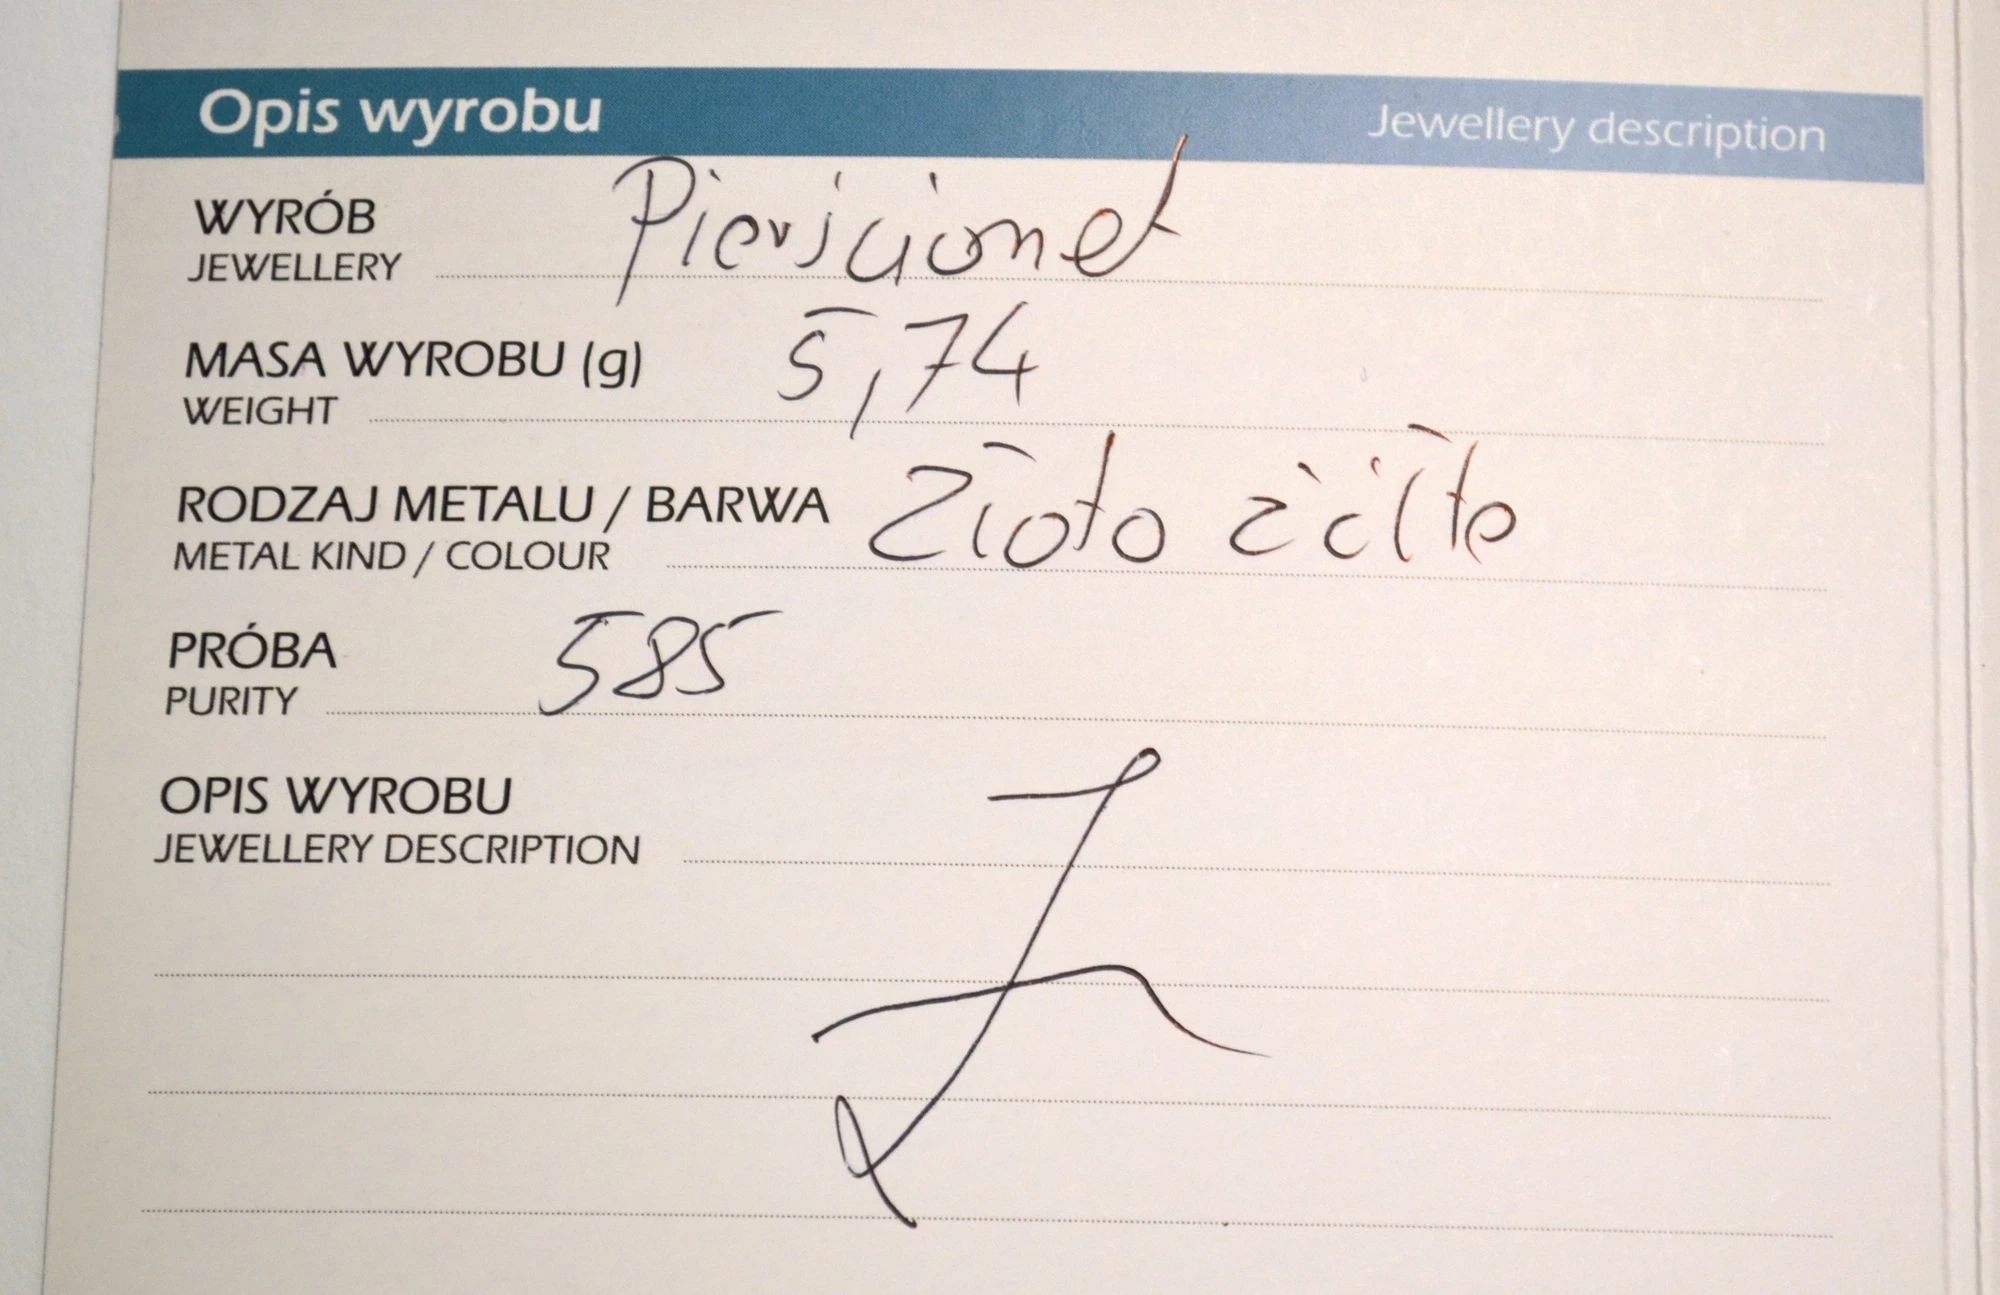 Opis wyrobu Jewellery description
WYRÓB Pierścionek
JEWELLERY
MASA WYROBU (g) 5,74
WEIGHT
RODZAJ METALU / BARWA Złoto żółte
METAL KIND / COLOUR
PRÓBA 585
PURITY
OPIS WYROBU
JEWELLERY DESCRIPTION